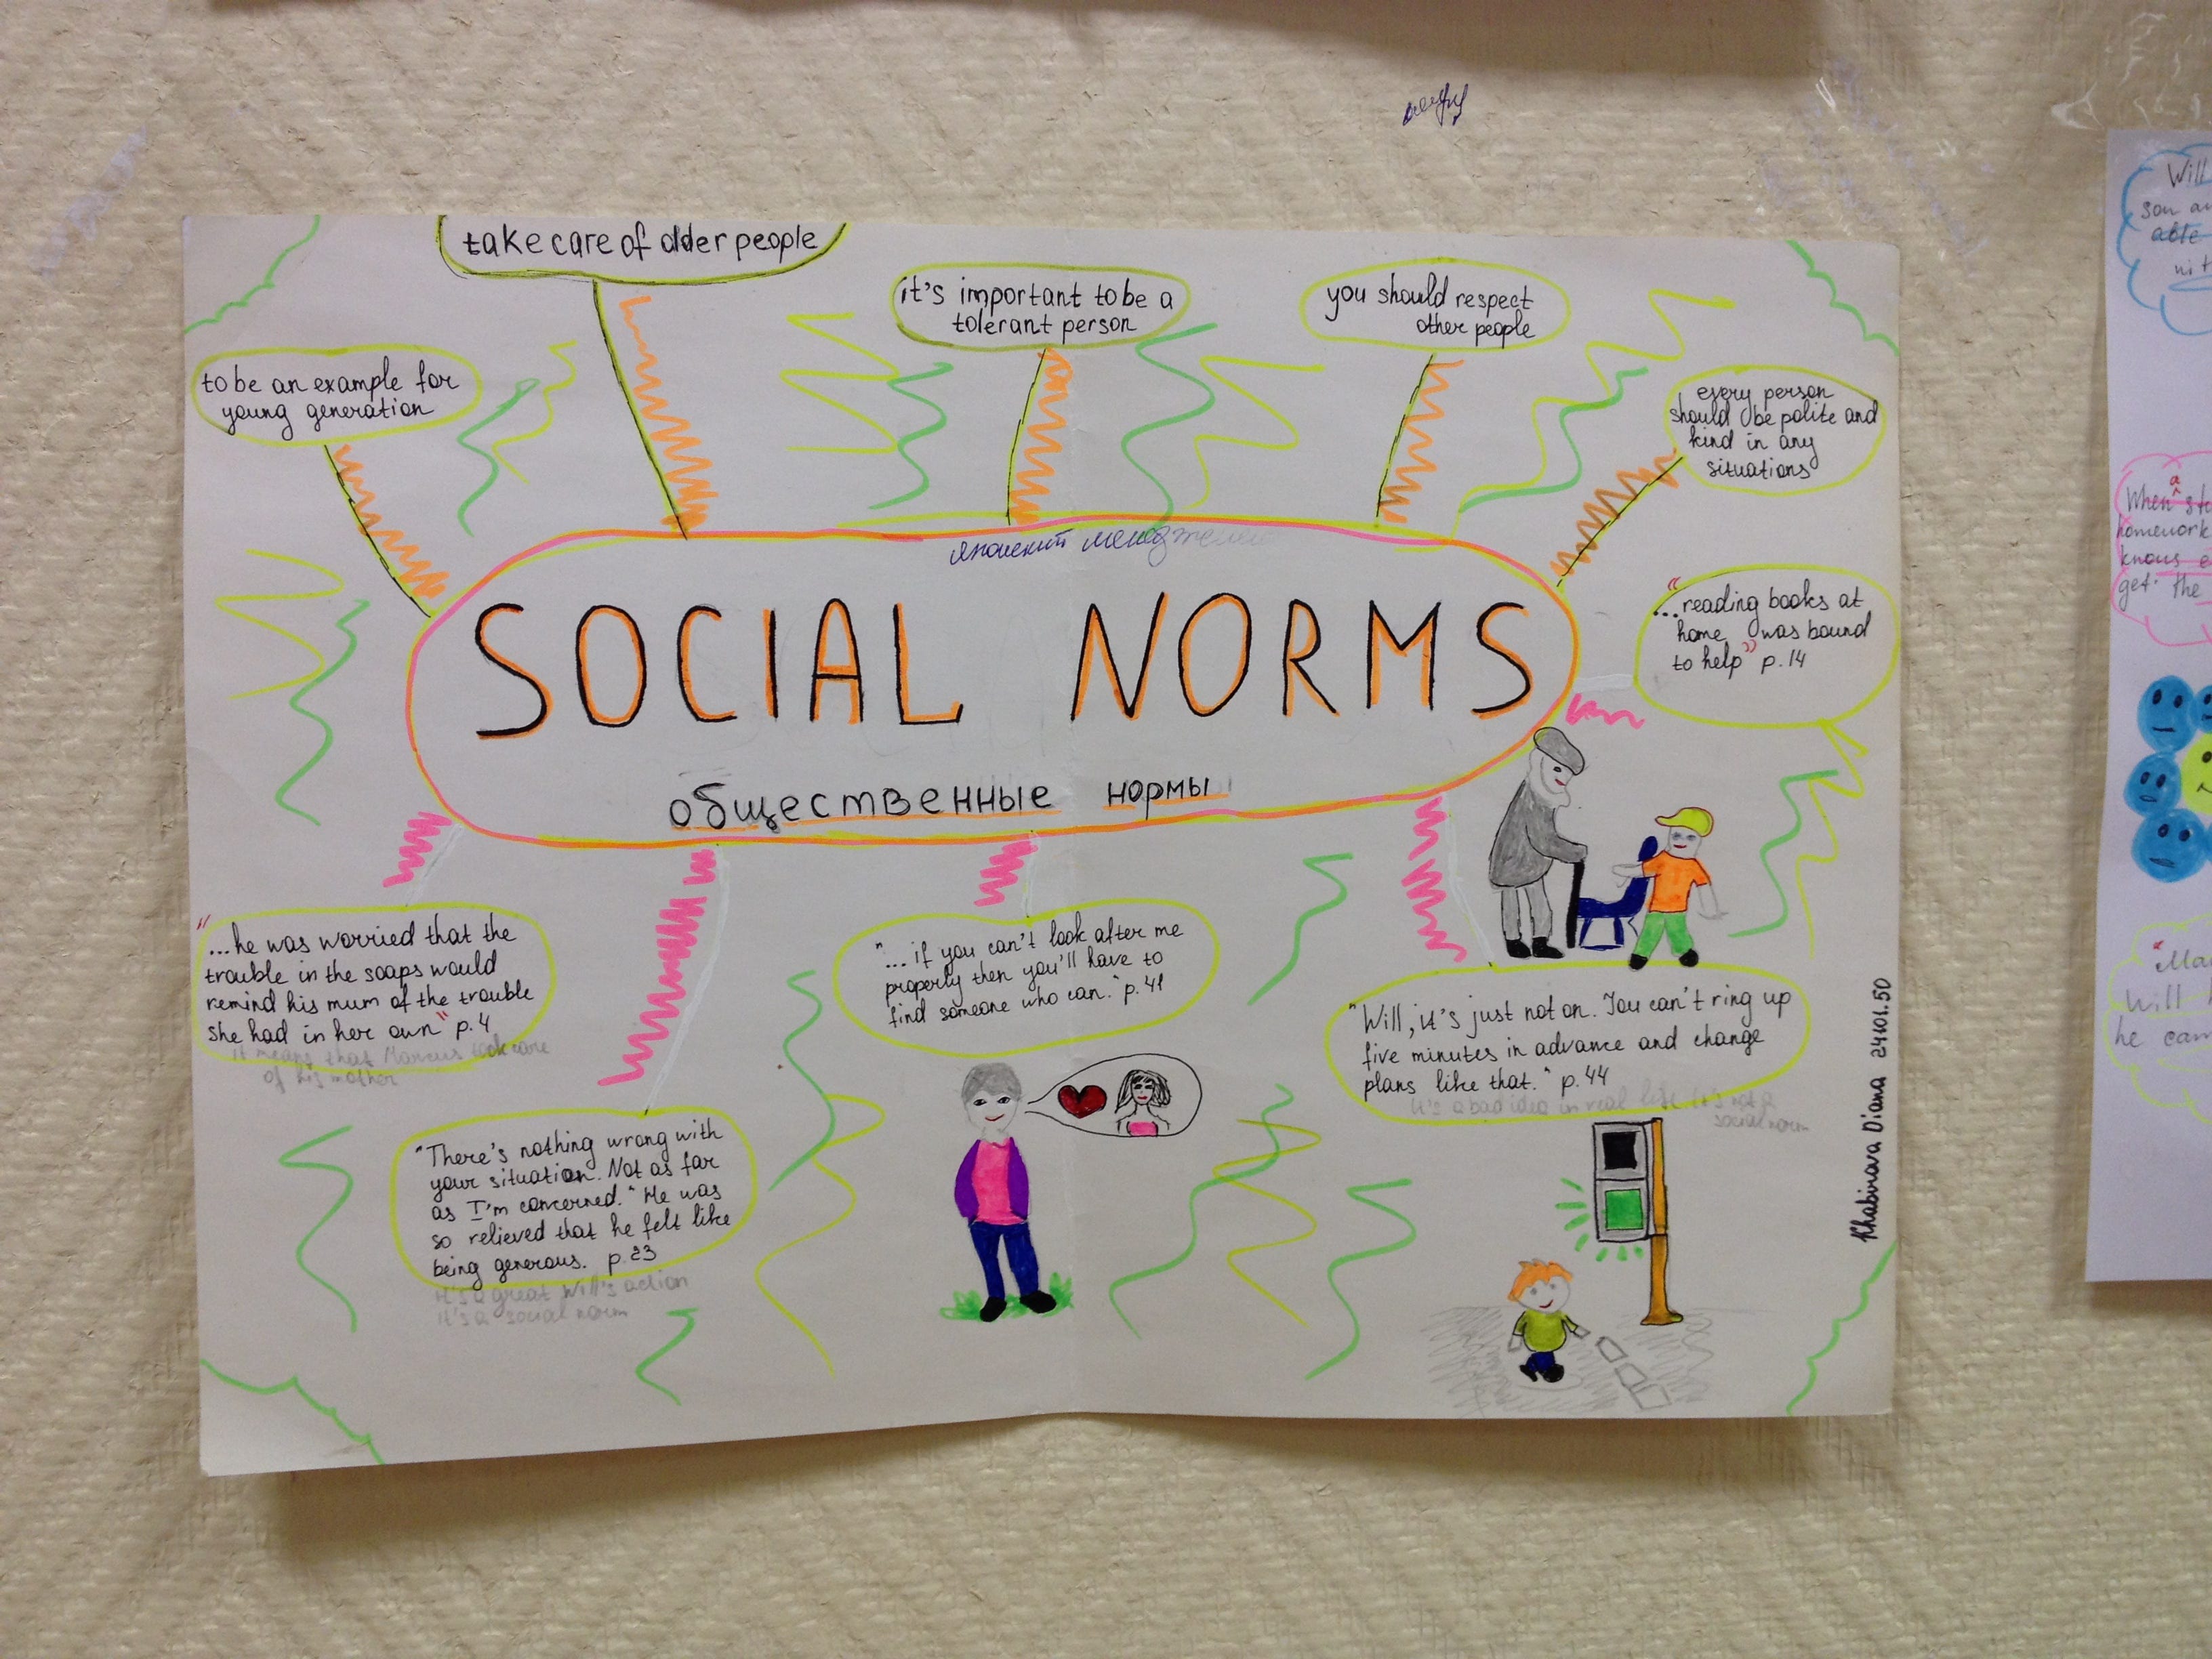 take care of older people
it's important to be a
tolerant person
you should respect
other people
to be an example for
young generation
every person
should be polite and
kind in any
situations
японский менеджмент
SOCIAL NORMS
общественные нормы
"...reading books at
home was bound
to help" p.14
"...he was worried that the
trouble in the soaps would
remind his mum of the trouble
she had in her own" p.4
it means that Marcus took care
of his mother
"...if you can't look after me
properly then you'll have to
find someone who can." p.41
"Will, it's just not on. You can't ring up
five minutes in advance and change
plans like that." p.44
it's a bad idea in real life. it's not a
social norm
"There's nothing wrong with
your situation. Not as far
as I'm concerned." He was
so relieved that he felt like
being generous. p.23
it's a great Will's action
it's a social norm
Khabirova Diana 24101.50
Will
son
able
When a
homework
knows
get the
Will
he can